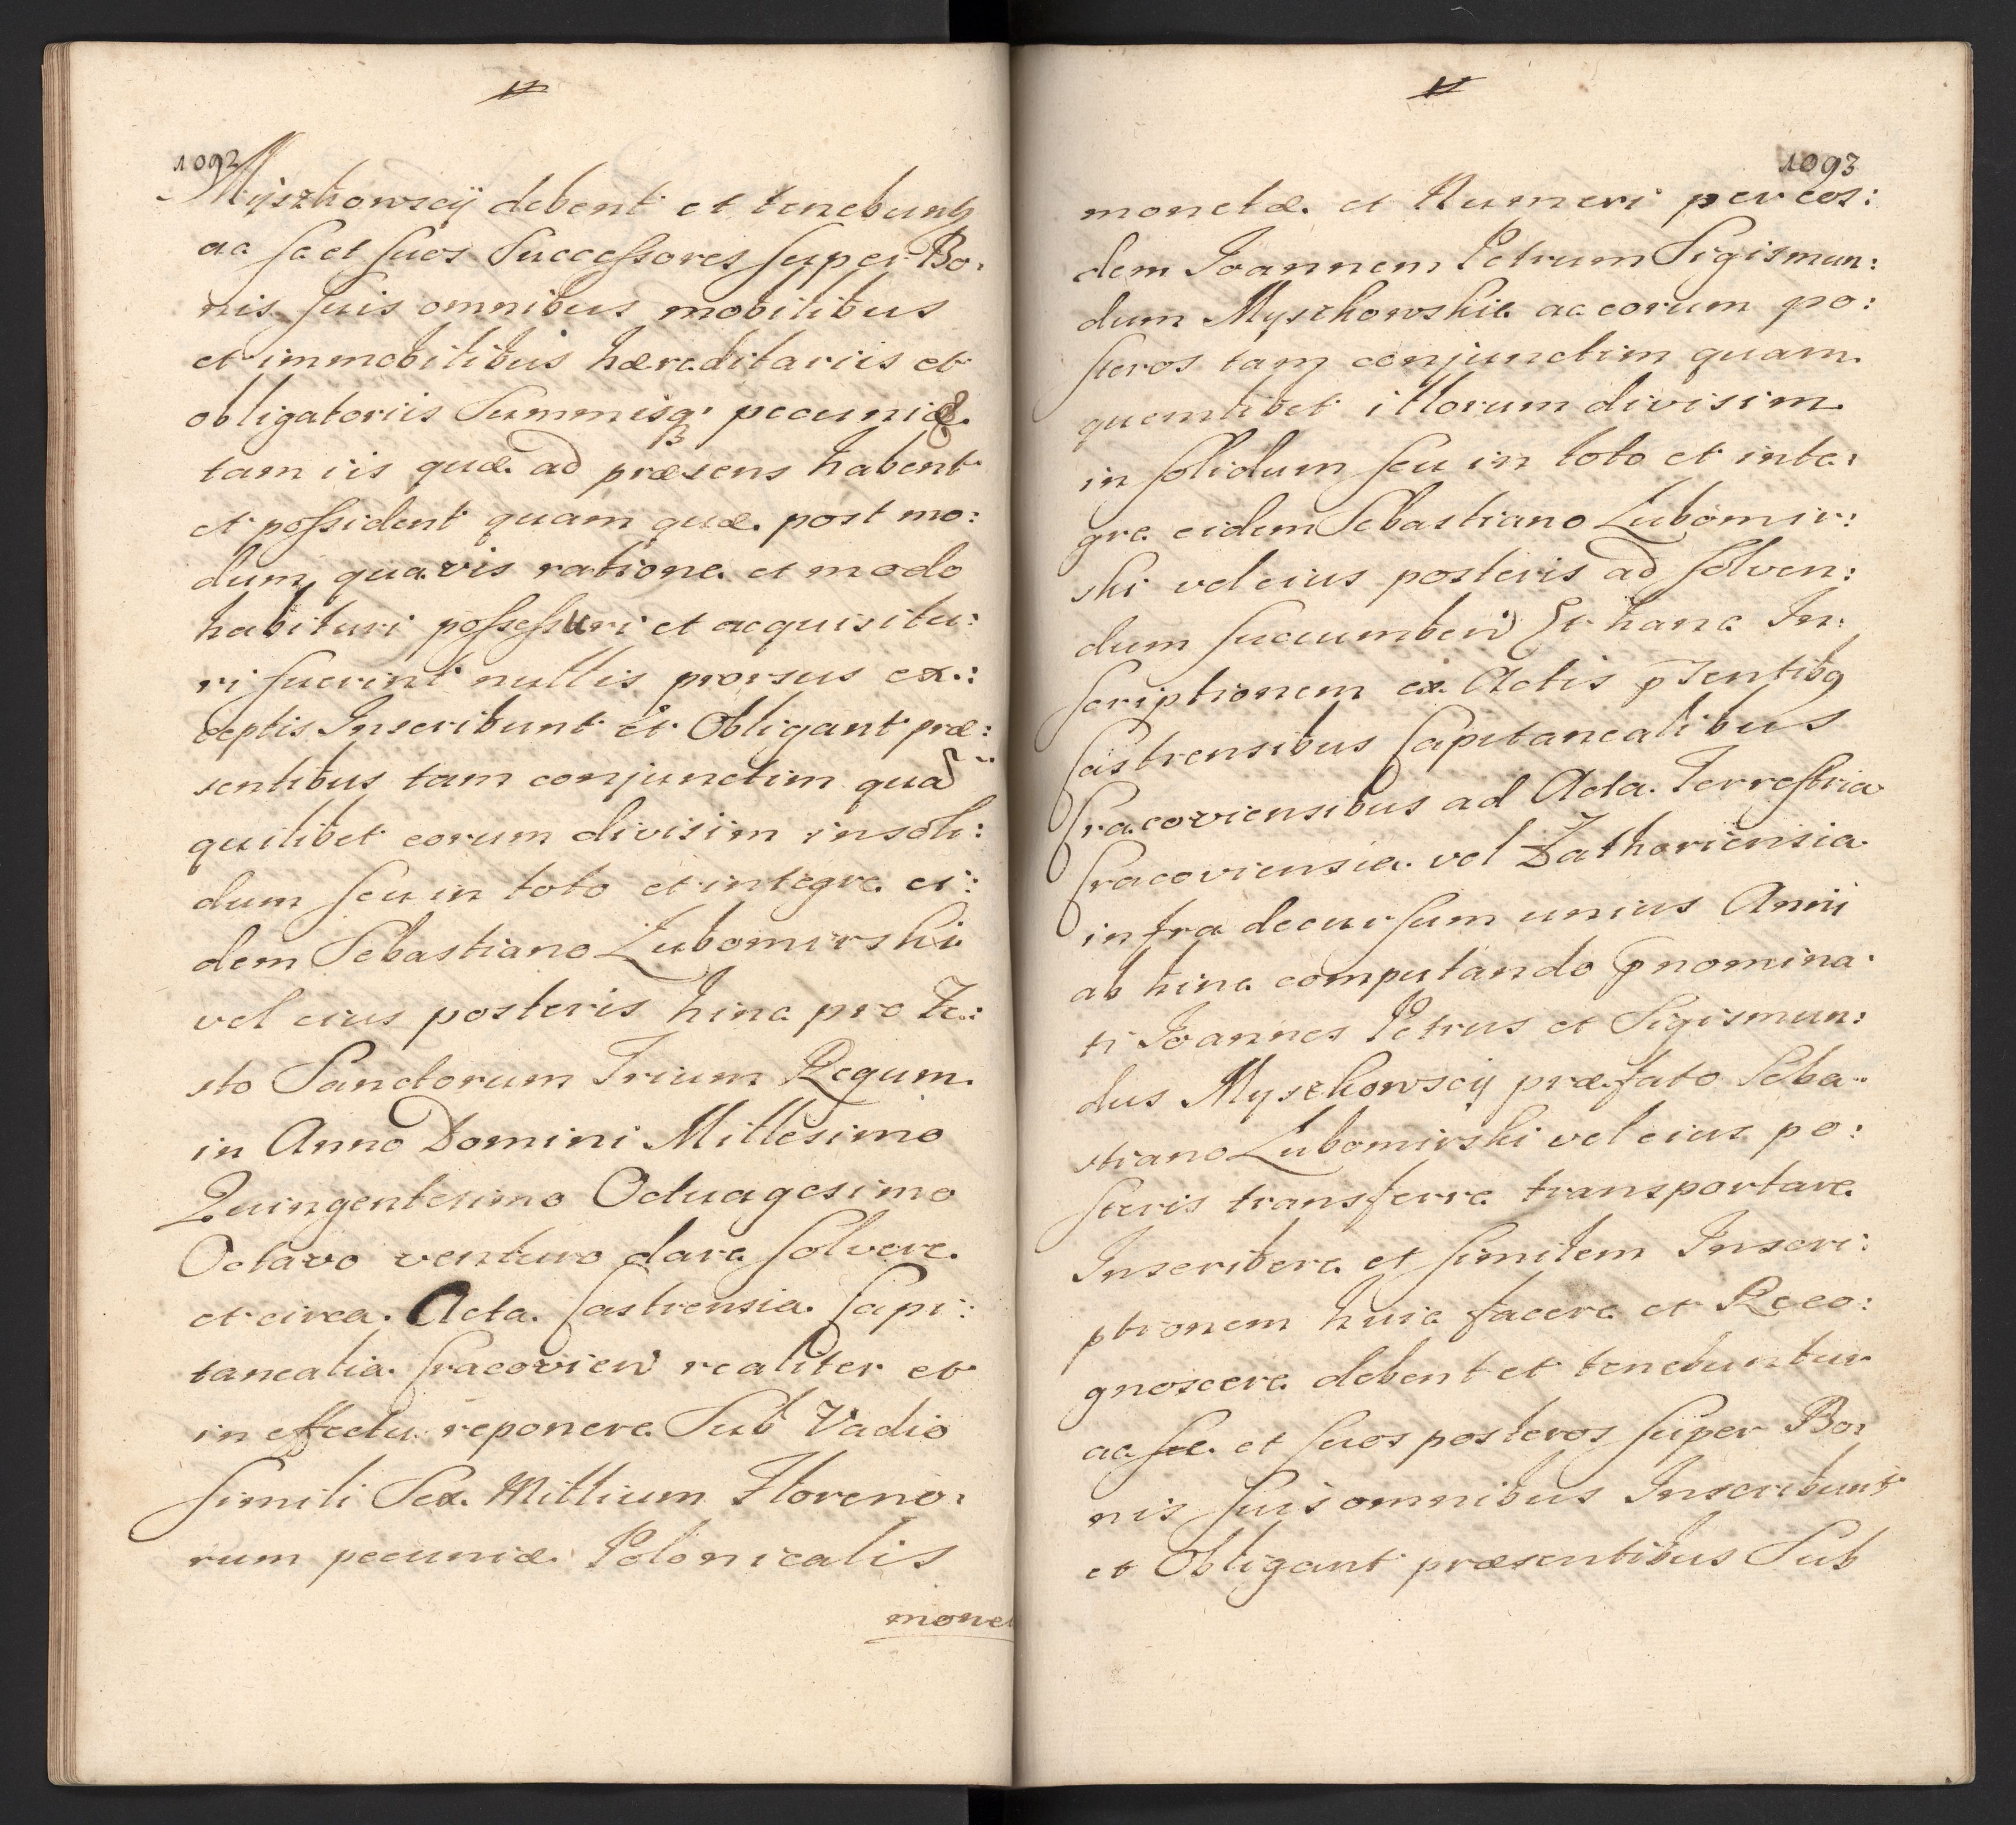 1092
Myszkowscÿ debent et tenebuntꝫ
ac se et suos Successores super Bo:
nis suis omnibus mobilibus
et immobilibus hæreditariis et
obligatoriis Summisq; pecuniæ
tam iis quæ ad præsens habent
et possident quam quæ post mo:
dum quavis ratione et modo
habituri possessuri et acquisitu:
ri fuerint nullis prorsus ex:
ceptis Inscribunt et Obligant præ:
sentibus tam conjunctim qua
quilibet eorum divisim insoli:
dum seu in toto et integre ei:
dem Sebastiano Lubomirski
vel eius posteris hinc pro Fe:
sto Sanctorum Trium Regum
in Anno Domini Millesimo
Quingentesimo Octuagesimo
Octavo venturo dare solvere
et circa Acta Castrensia Capi:
tanealia Cracovien realiter et
in effectu reponere Sub Vadio
simili Sex Millium Floreno:
rum pecuniæ Polonicalis
mone
1093
monetæ et Numeri per eos:
dem Joannem Petrum Sigismun:
dum Myszkowskie ac eorum po:
steros tam conjunctim quam
quemlibet illorum divisim
in solidum seu in toto et inte:
gre eidem Sebastiano Lubomir:
ski vel eius posteris ad solven:
dum succumben Et hanc In:
scriptionem ex Actis pͬsentibꝫ
Castrensibus Capitanealibus
Cracoviensibus ad Acta Terrestria
Cracoviensia vel Zathoriensia
infra decursum unius Anni
ab hinc computando pnomina:
ti Joannes Petrus et Sigismun:
dus Myszkowscÿ præfato Seba:
stiano Lubomirski vel eius po:
steris transferre transportare
Inscribere et similem Inscri:
ptionem huic facere et Reco:
gnoscere debent et tenebuntur
ac se et suos posteros super Bo:
nis suis omnibus Inscribunt
et Obligant præsentibus Sub